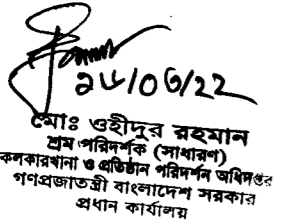 ২৮/০৩/২২
মোঃ ওহীদুর রহমান
শ্রম পরিদর্শক (সাধারণ)
কলকারখানা ও প্রতিষ্ঠান পরিদর্শন অধিদপ্তর
গণপ্রজাতন্ত্রী বাংলাদেশ সরকার
প্রধান কার্যালয়